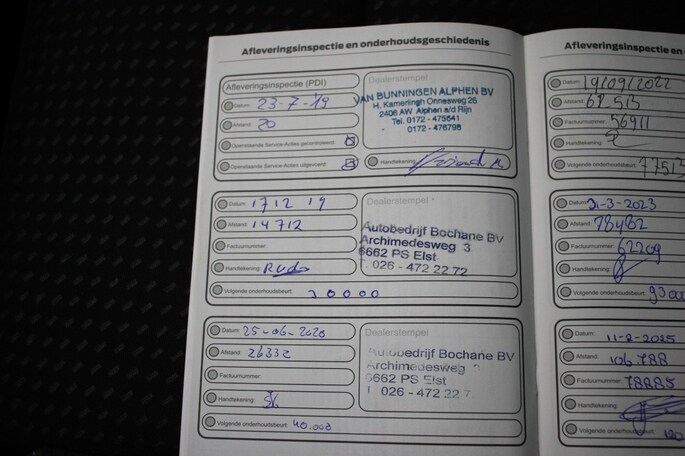 Afleveringsinspectie en onderhoudsgeschiedenis
Afleveringsinspectie (PDI)
Datum: 23-7-'19
Afstand: 20
Openstaande Service-Acties gecontroleerd:
Openstaande Service-Acties uitgevoerd:
Dealerstempel
VAN BUNNINGEN ALPHEN BV
H. Kamerlingh Onnesweg 26
2408 AW Alphen a/d Rijn
Tel. 0172 - 475641
0172 - 476798
Handtekening:
Datum: 17 12 19
Afstand: 14712
Factuurnummer:
Handtekening:
Volgende onderhoudsbeurt: 30000
Dealerstempel
Autobedrijf Bochane BV
Archimedesweg 3
6662 PS Elst
T. 026 - 472 22 72
Datum: 25-06-2020
Afstand: 26332
Factuurnummer:
Handtekening:
Volgende onderhoudsbeurt: 40.000
Dealerstempel
Autobedrijf Bochane BV
Archimedesweg
6662 PS Elst
026 - 472 22 7
Afleveringsinspectie en
Datum: 19/09/2022
Afstand: 62.513
Factuurnummer: 56911
Handtekening:
Volgende onderhoudsbeurt: 77513
Datum: 31-3-2023
Afstand: 78462
Factuurnummer: 62209
Handtekening:
Volgende onderhoudsbeurt: 93000
Datum: 11-2-2025
Afstand: 106788
Factuurnummer: 78885
Handtekening:
Volgende onderhoudsbeurt: 120